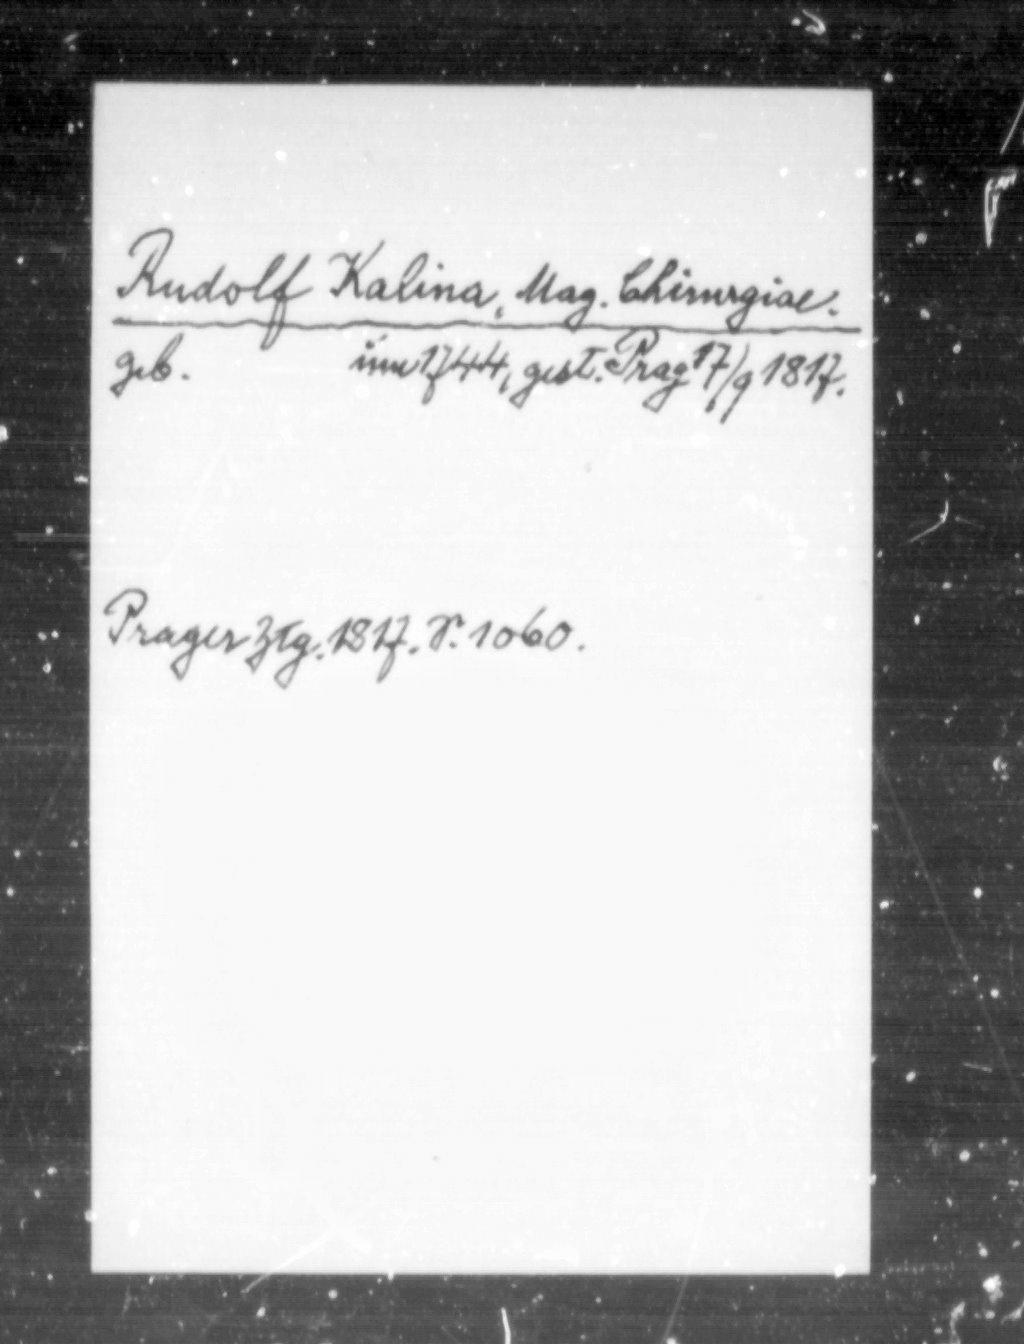 Rudolf Kalina, Mag. Chirurgiae.
geb. um 1744, gest. Prag 17/9 1817.
Prager Ztg. 1817. S. 1060.